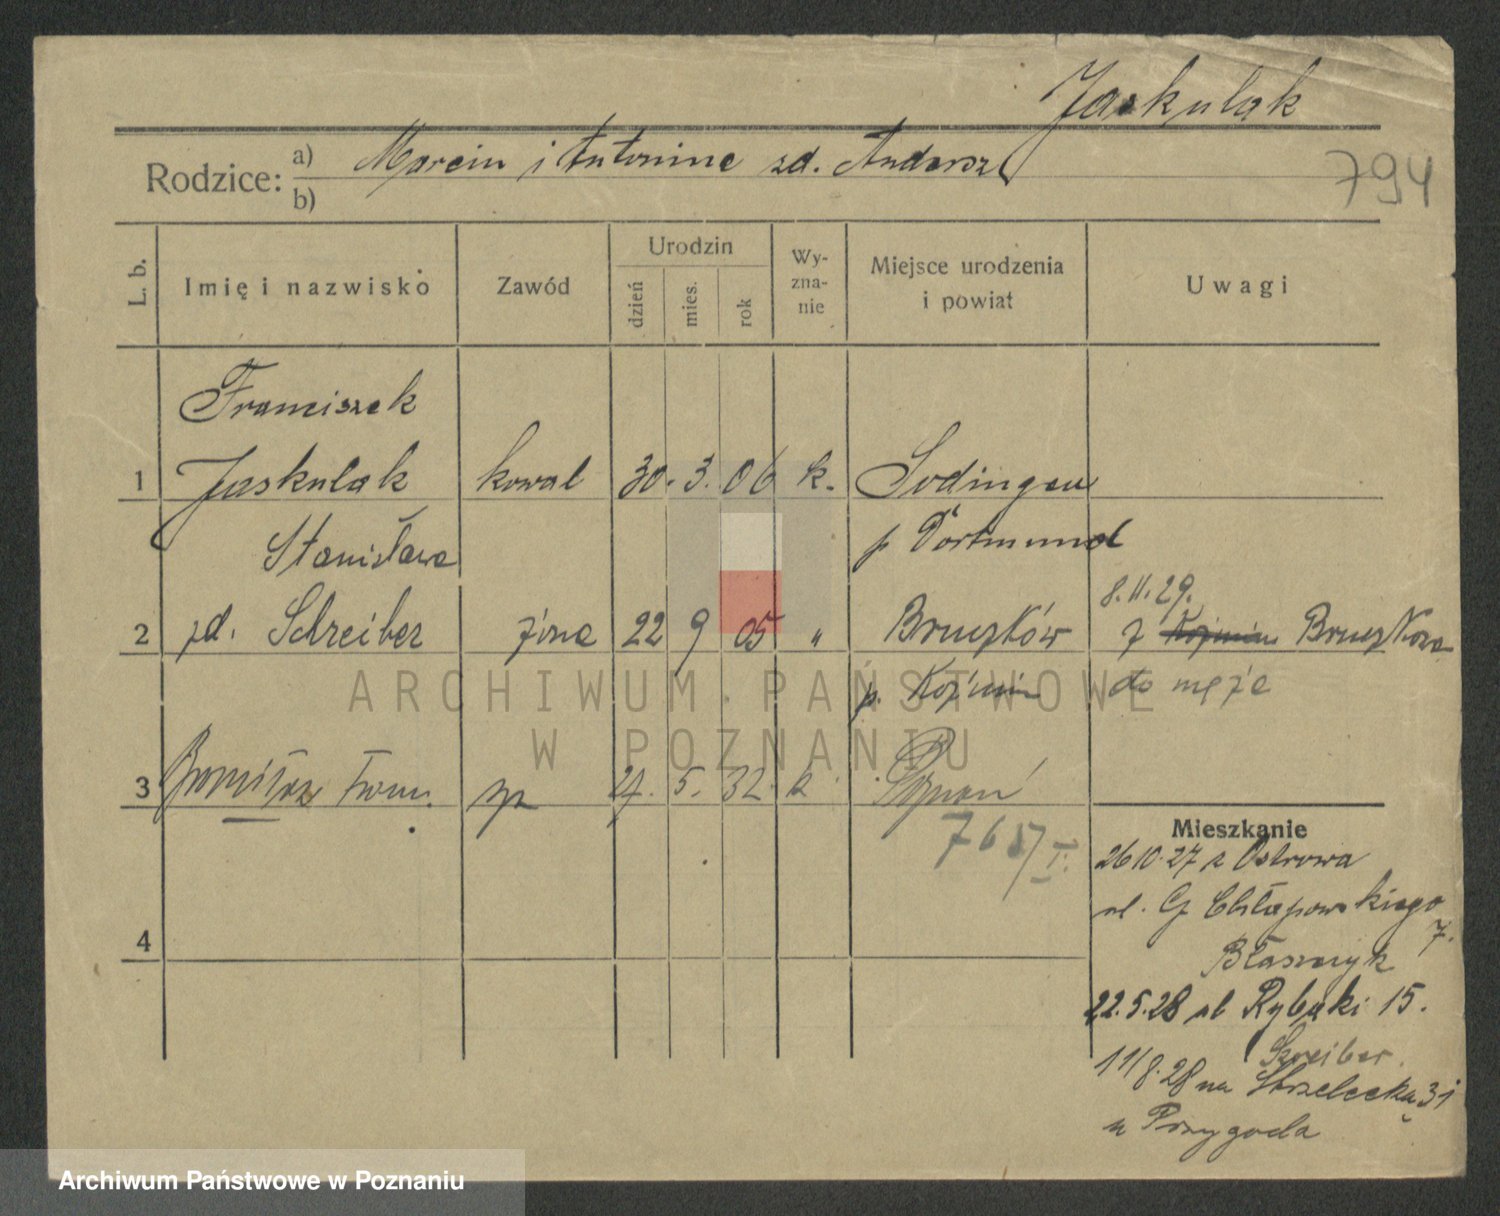 Jaskulak
Rodzice: a) Marcin i Antonina zd. Andersz
b)
794
L. b.
Imię i nazwisko
Zawód
Urodzin
dzień
mies.
rok
Wy-
zna-
nie
Miejsce urodzenia
i powiat
Uwagi
Franciszek
1 Jaskulak kowal 30. 3. 06 k. Sodingen
p Dortmund
Stanisława
8.11.29.
2 zd. Schreiber żona 22 9 05 " Bruczków z Koźmin Bruczkowa
p. Koźmin do męża
3 Bronisław Fran. 5. 32 k Poznań
Mieszkanie
26 10.27 z Ostrowa
ul. G Chłapowskiego
7.
Błaszczyk
4
22.5.28 ul Rybaki 15.
Szreiber.
11/8.28 na Strzelecką 31
u Przygoda
ARCHIWUM PAŃSTWOWE
W POZNANIU
Archiwum Państwowe w Poznaniu